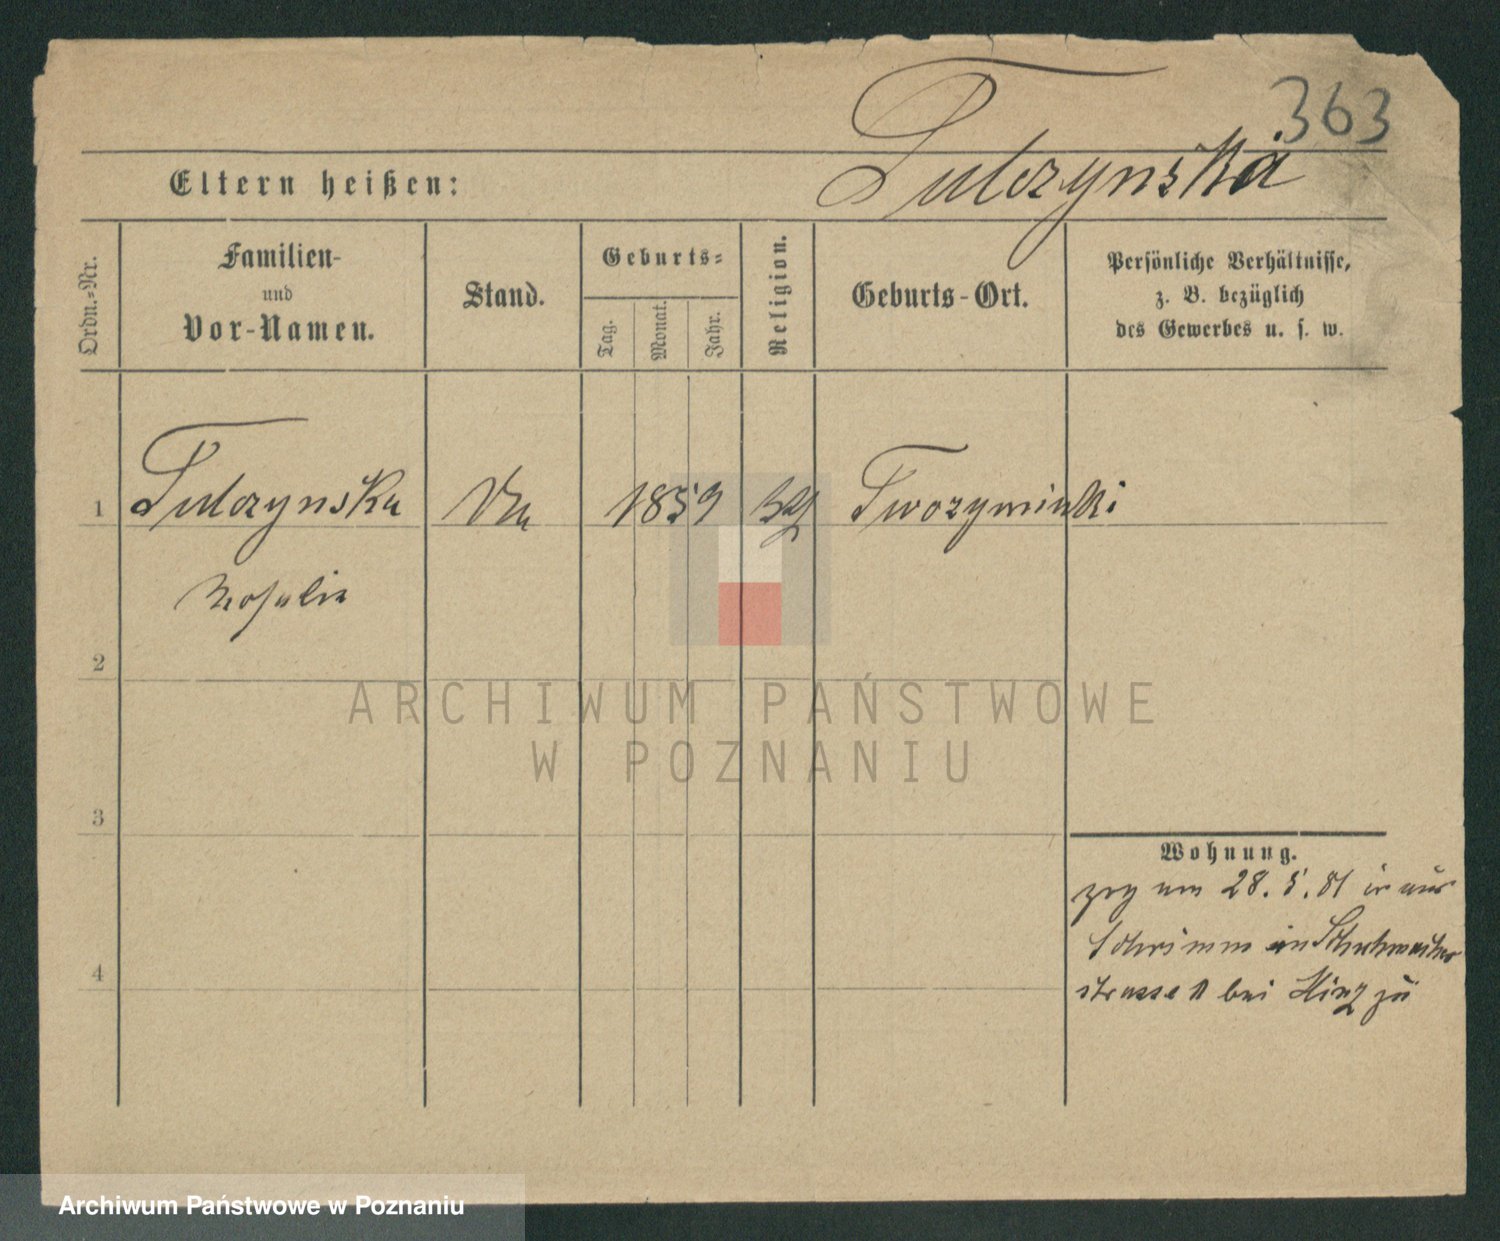 363
Tulczynska
Eltern heißen:
Ordn.-Nr.
Familien-
und
Vor-Namen.
Stand.
Geburts-
Tag.
Monat.
Jahr.
Religion.
Geburts-Ort.
Persönliche Verhältnisse,
z. B. bezüglich
des Gewerbes u. s. w.
1
Tulczynska
1859
Rosalie
2
3
4
Wohnung.
zog am 28. 5. 81 aus
Schrimm
strasse bei zu
ARCHIWUM PAŃSTWOWE
W POZNANIU
Archiwum Państwowe w Poznaniu